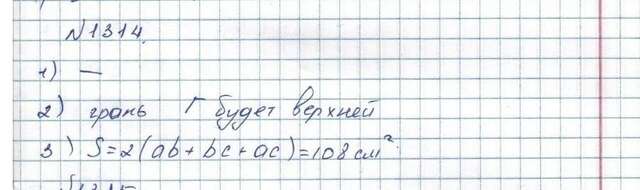 №1314.
1) —
2) грань Г будет верхней
3) S=2(ab+bc+ac)=108 см²